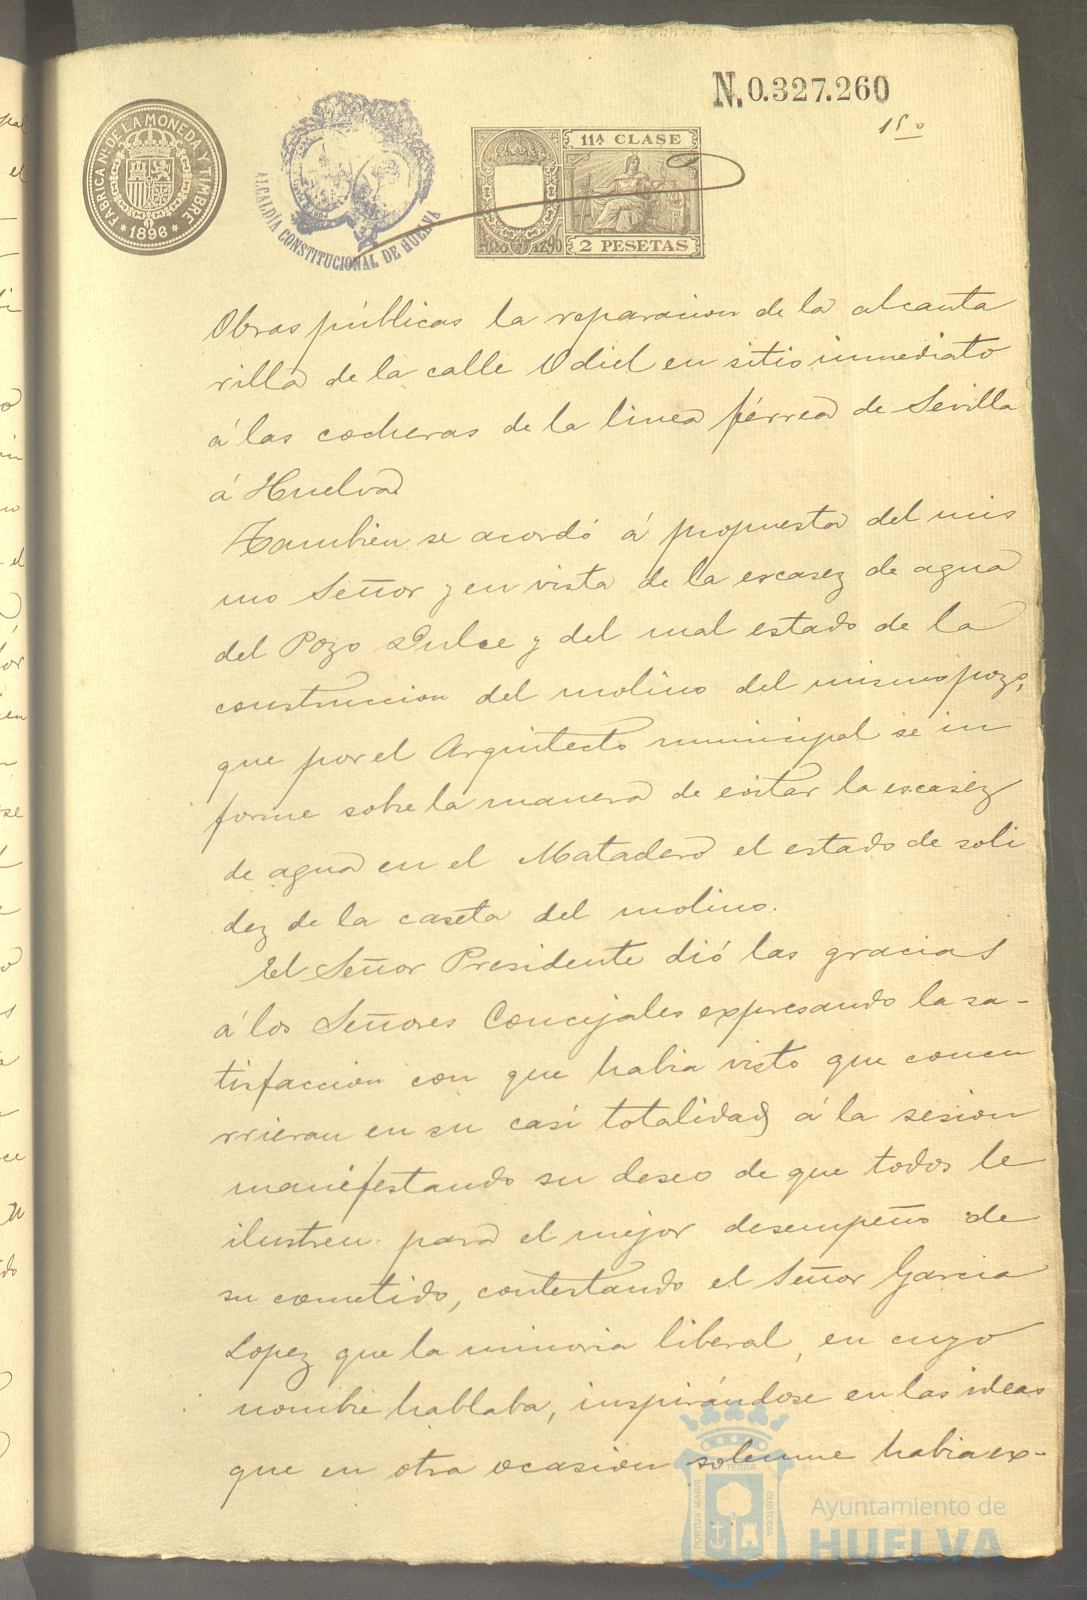 N. 0.327.260
FABRICA Nl. DE LA MONEDA Y TIMBRE
* 1896 *
ALCALDÍA CONSTITUCIONAL DE HUELVA
11ª CLASE
2 PESETAS
Obras públicas la reparacion de la alcanta
rilla de la calle Odiel en sitio inmediato
á las cocheras de la linea férrea de Sevilla
á Huelva.
Tambien se acordó á propuesta del mis
mo Señor y en vista de la escasez de agua
del Pozo Dulce y del mal estado de la
construccion del molino del mismo pozo,
que por el Arquitecto municipal se in
forme sobre la manera de evitar la escasez
de agua en el Matadero el estado de soli
dez de la caseta del molino.
El Señor Presidente dió las gracias
á los Señores Concejales expresando la sa-
tisfaccion con que habia visto que concu
rrieran en su casi totalidad á la sesion
manifestando su deseo de que todos le
ilustren para el mejor desempeño de
su cometido, contestando el Señor Garcia
Lopez que la minoria liberal, en cuyo
nombre hablaba, inspirándose en las ideas
que en otra ocasion solemne habia ex-
PORTUS MARIS
TERRAE
CUSTODIA
Ayuntamiento de
HUELVA